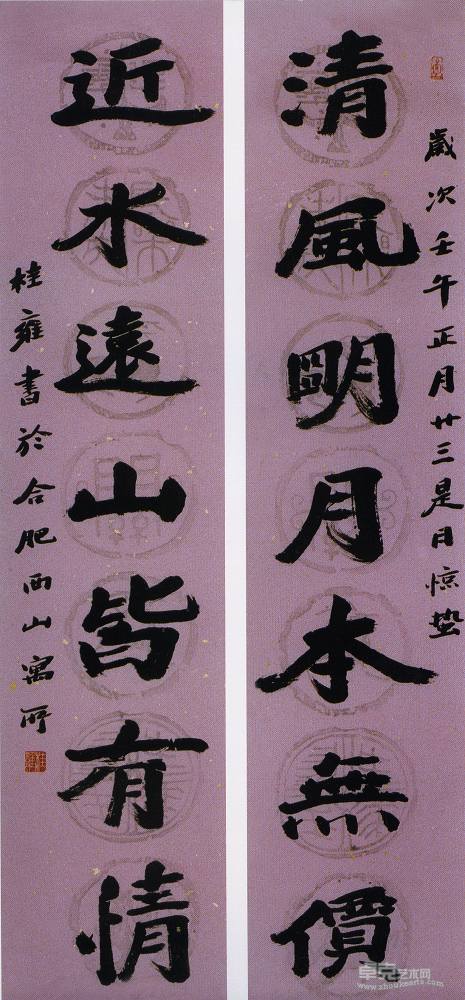 歲次壬午正月廿三是日惊蛰
清風明月本無價
近水遠山皆有情
桂雍書於合肥西山寓所
卓克艺术网
www.zhuokearts.com